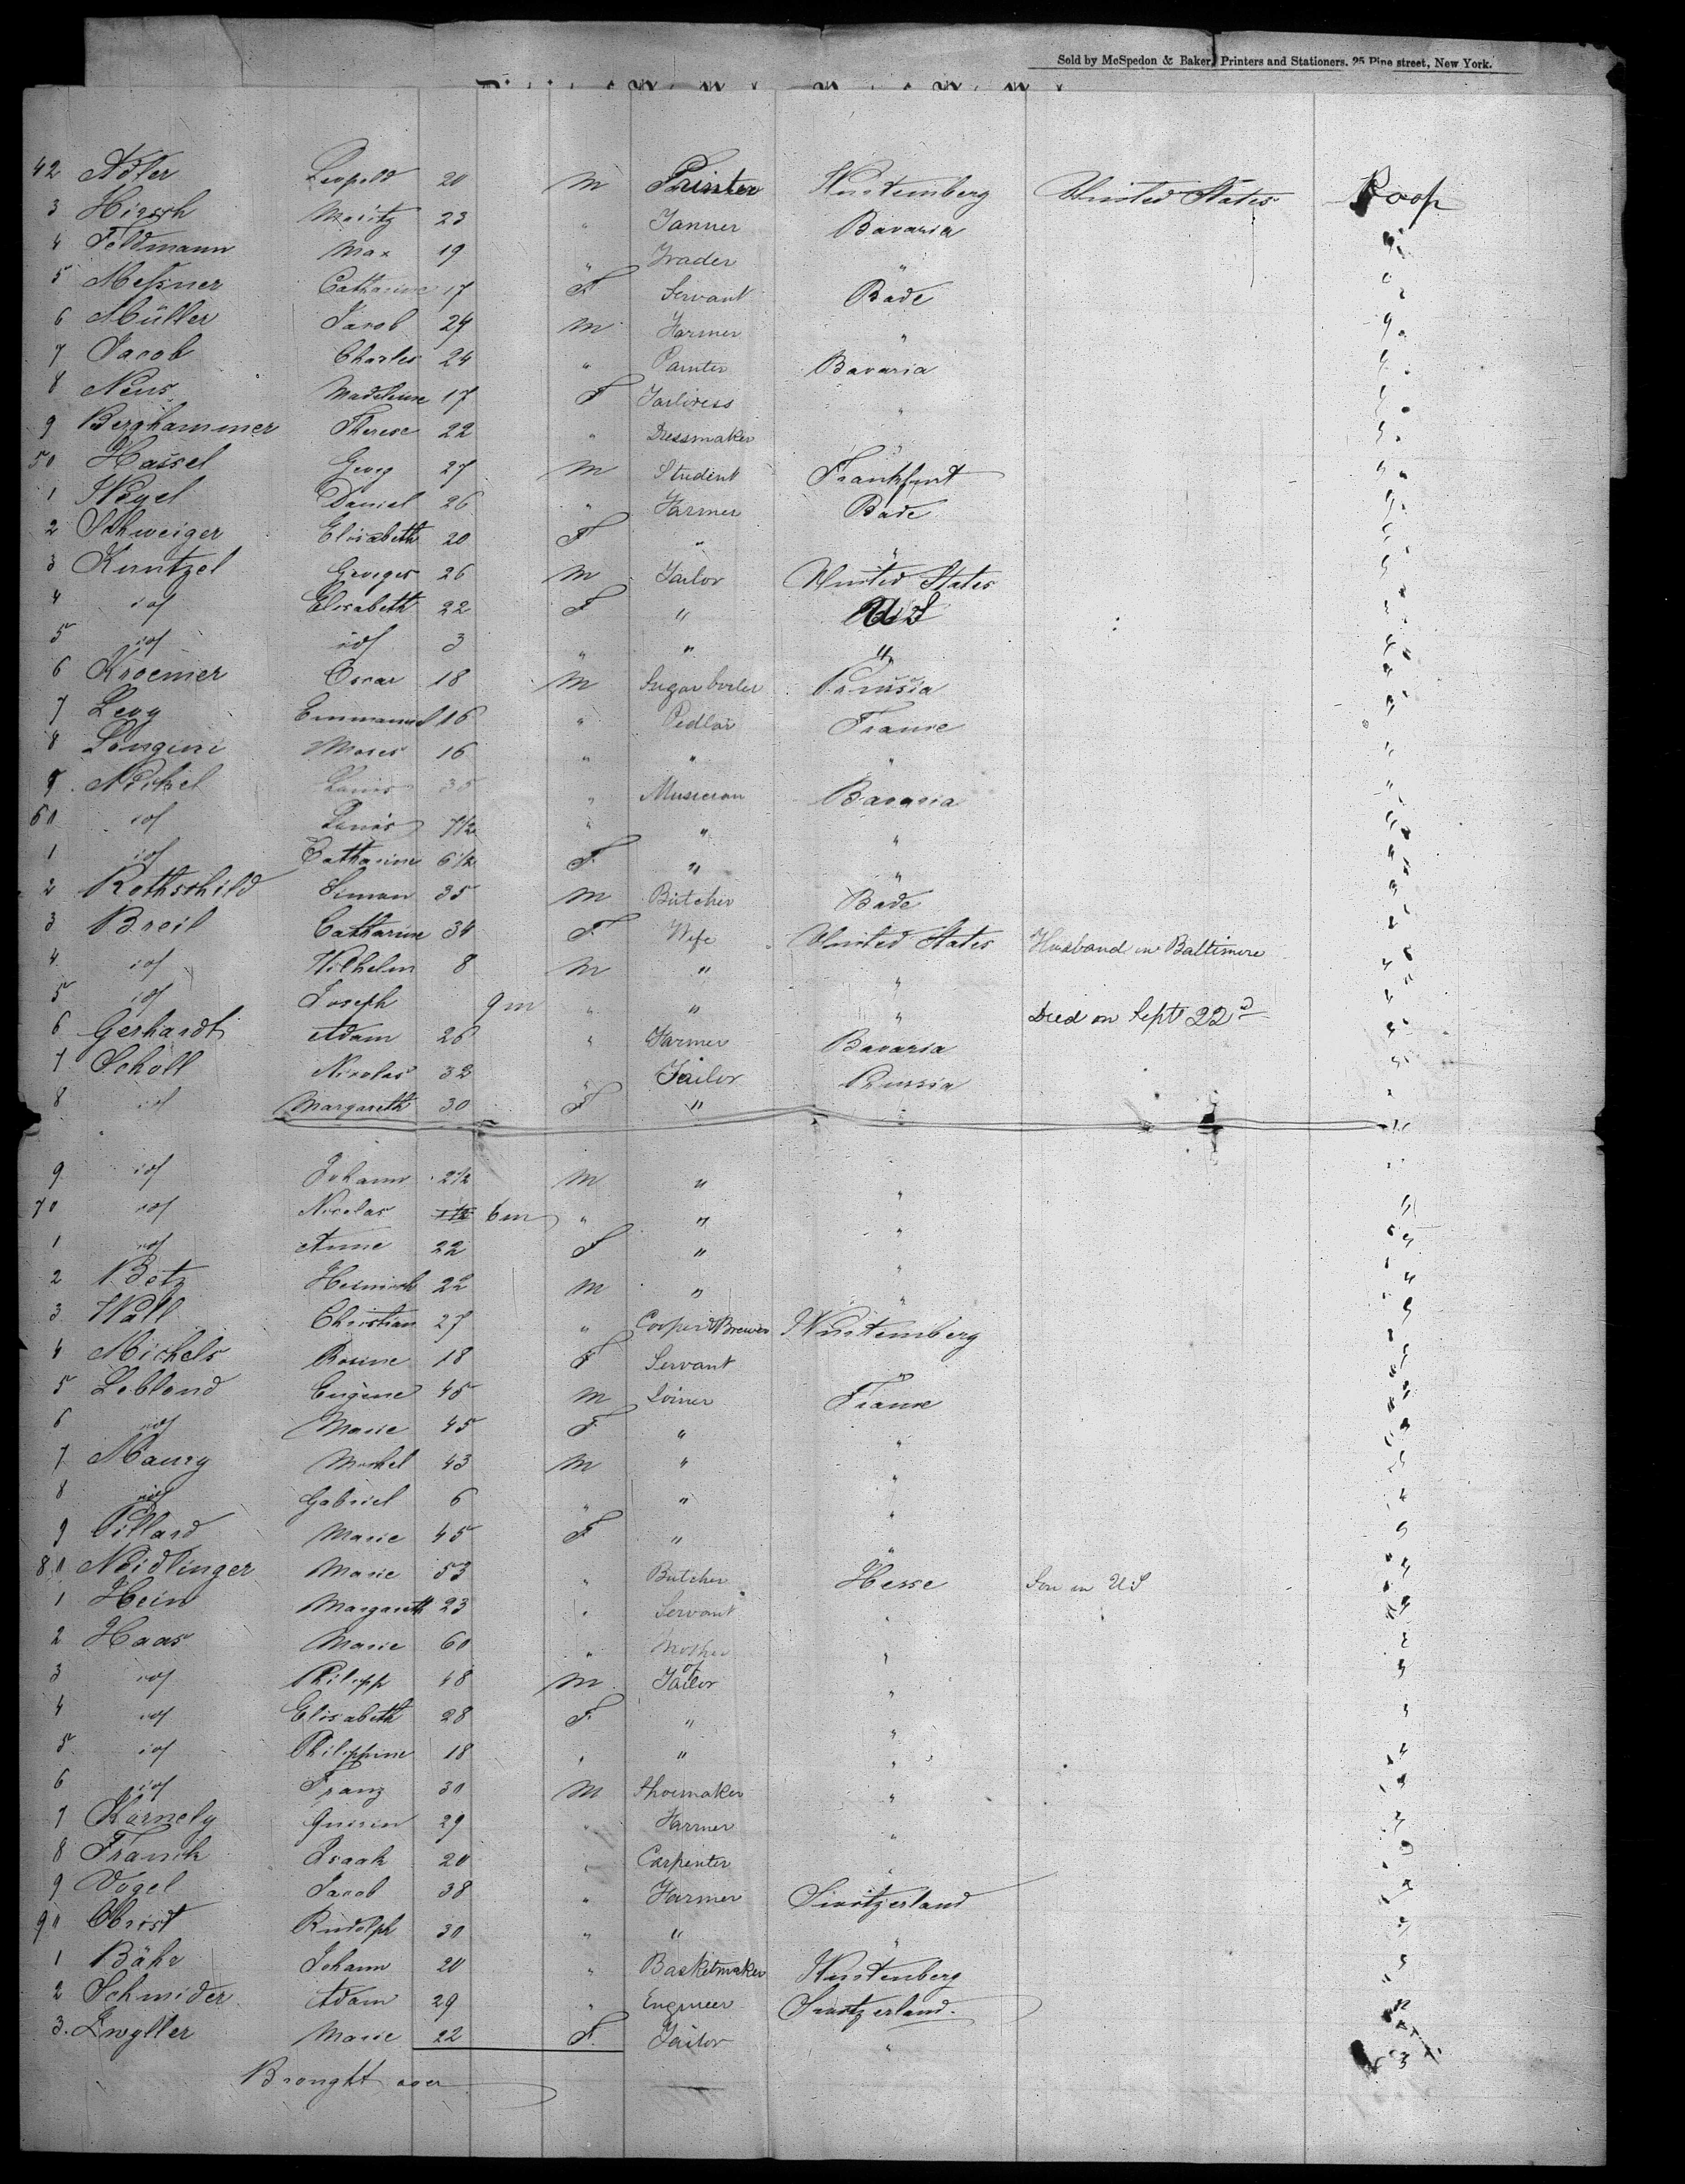 Sold by McSpedon & Baker, Printers and Stationers, 25 Pine street, New York.
42 Adler Leopold 20 M Printer Wurtemberg United States Poop
3 Hirsch Moritz 23 " Tanner Bavaria "
4 Feldmann Max 19 " Trader " "
5 Meßner Catharine 17 F Servant Bade "
6 Müller Jacob 24 M Farmer " "
7 Jacob Charles 24 " Painter Bavaria "
8 Neus Madeleine 17 F Tailoress " "
9 Berghammer Therese 22 " Dressmaker " "
50 Hassel Georg 27 M Student Frankfurt "
1 Daniel 26 " Farmer Bade "
2 Schweiger Elisabeth 20 F " " "
3 Kuntzel Georges 26 M Tailor United States "
4 id Elisabeth 22 F " U.S "
5 id id 3 " " " "
6 Kroemer Oscar 18 M Sugar boiler Prussia "
7 Levy Emmanuel 16 " Pedlar France "
8 Moses 16 " " " "
9 Louis 35 " Musician Bavaria "
60 id Louis 7½ " " " "
1 id Catharine 6½ F " " "
2 Rothschild Simon 35 M Butcher Bade "
3 Breil Catharine 34 F Wife United States Husband in Baltimore "
4 id Wilhelm 8 M " " "
5 id Joseph 9 m " " " Died on Sept 22d "
6 Gerhardt Adam 26 " Farmer Bavaria "
7 Scholl Nicolas 32 " Tailor Prussia "
8 id Margareth 30 F " " "
9 id Johann 2½ M " " "
70 id Nicolas 6 m " " " "
1 id Anne 22 F " " "
2 Betz Heinrich 22 M " " "
3 Wall Christian 27 " Cooper & Brewer Wurtemberg "
4 Michels Rosine 18 F Servant " "
5 Leblond Eugène 45 M Joiner France "
6 id Marie 45 F " " "
7 Maury Michel 43 M " " "
8 id Gabriel 6 " " " "
9 Pillard Marie 45 F " " "
80 Neidlinger Marie 53 " Butcher Hesse Son in US "
1 Hein Margareth 23 " Servant " "
2 Haas Marie 60 " Mother of " "
3 id Philipp 48 M Tailor " "
4 id Elisabeth 28 F " " "
5 id Philippine 18 " " " "
6 id Franz 30 M Shoemaker " "
7 Karnely 29 " Farmer " "
8 Franck Isaak 20 " Carpenter " "
9 Vogel Jacob 38 " Farmer Switzerland "
90 Obrist Rudolph 30 " " " "
1 Bähr Johann 20 " Basketmaker Wurtemberg "
2 Schmider Adam 29 " Engineer Switzerland "
3. Zwyller Marie 22 F. Tailor "
Brought over